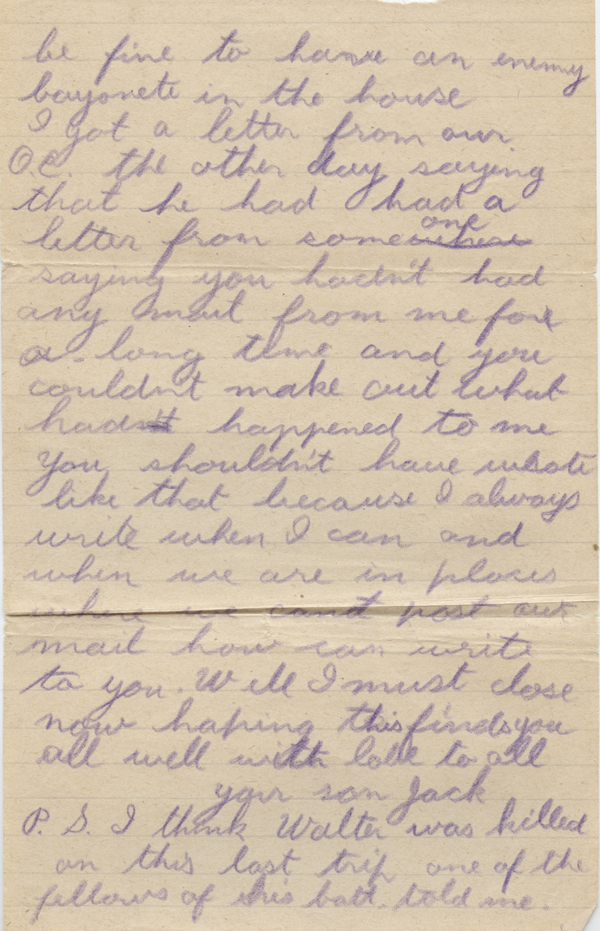 be fine to have an enemy
bayonete in the house
I got a letter from our
O.C. the other day saying
that he had had a
letter from someone
saying you hadn't had
any mail from me for
a long time and you
couldnt make out what
had happened to me
You shouldn't have wrote
like that because I always
write when I can and
when we are in places
where we cant post our
mail how can write
to you. Well I must close
now hoping this finds you
all well with love to all
your son Jack
P.S. I think Walter was killed
on this last trip one of the
fellows of his batt. told me.